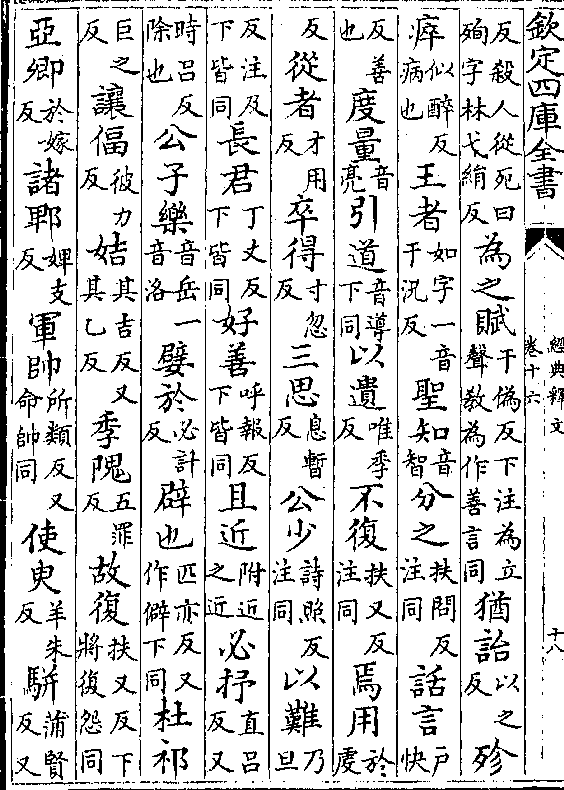 欽定四庫全書
經典釋文
卷十六
十八
反殺人從死曰殉字林弋絹反為之賦于偽反下注為立聲教為作善言同猶詒以之反殄
瘁似醉反病也王者如字一音于況反聖知音智分之扶問反注同話言戶快
反善也度量音亮引道音導下同以遺唯季反不復扶又反注同焉用於虔
反從者才用反卒得寸忽反三思息暫反公少詩照反注同以難乃旦
反注及下皆同長君丁丈反下皆同好善呼報反下皆同且近附近之近必抒直呂反又
時呂反除也公子樂音岳一音洛嬖於必計反辟也匹亦反又作僻下同杜祁
巨之反讓偪彼力反姞其吉反又其乙反季隗五罪反故復扶又反下將復怨同
亞卿於嫁反諸郫婢支反軍帥所類反又命帥同使臾羊朱反駢蒲賢反又